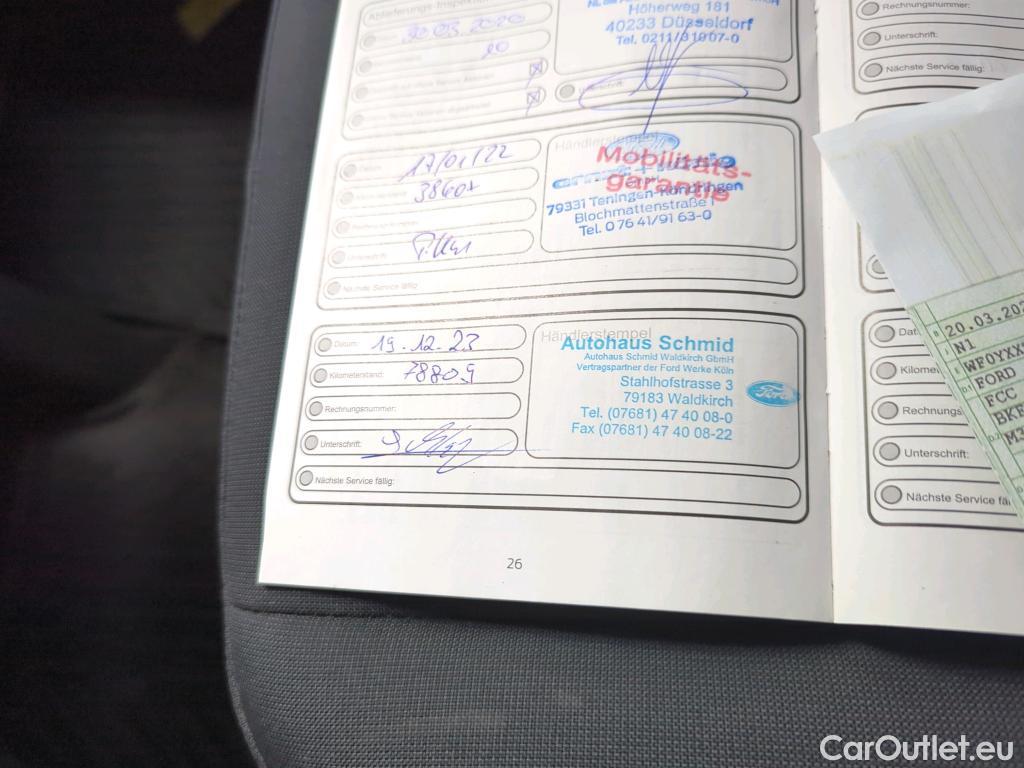 Ablieferungs-Inspektion
20.03.2020
20
Höherweg 181
40233 Düsseldorf
Tel. 0211/31907-0
Datum:
17/01/22
38607
Unterschrift:
Nächste Service fällig
Händlerstempel
Mobilitäts-
garantie
79331 Teningen-Köndringen
Blochmattenstraße 1
Tel. 0 76 41/91 63-0
Datum: 19.12.23
Kilometerstand: 78809
Rechnungsnummer:
Unterschrift:
Nächste Service fällig:
Händlerstempel
Autohaus Schmid
Autohaus Schmid Waldkirch GmbH
Vertragspartner der Ford Werke Köln
Stahlhofstrasse 3
79183 Waldkirch
Tel. (07681) 47 40 08-0
Fax (07681) 47 40 08-22
Ford
26
Rechnungsnummer:
Unterschrift:
Nächste Service fällig:
Dat
Kilome
Rechnungs
Unterschrift:
Nächste Service fäl
20.03.202
N1
WF0YXX
FORD
FCC
BKF
M3
CarOutlet.eu